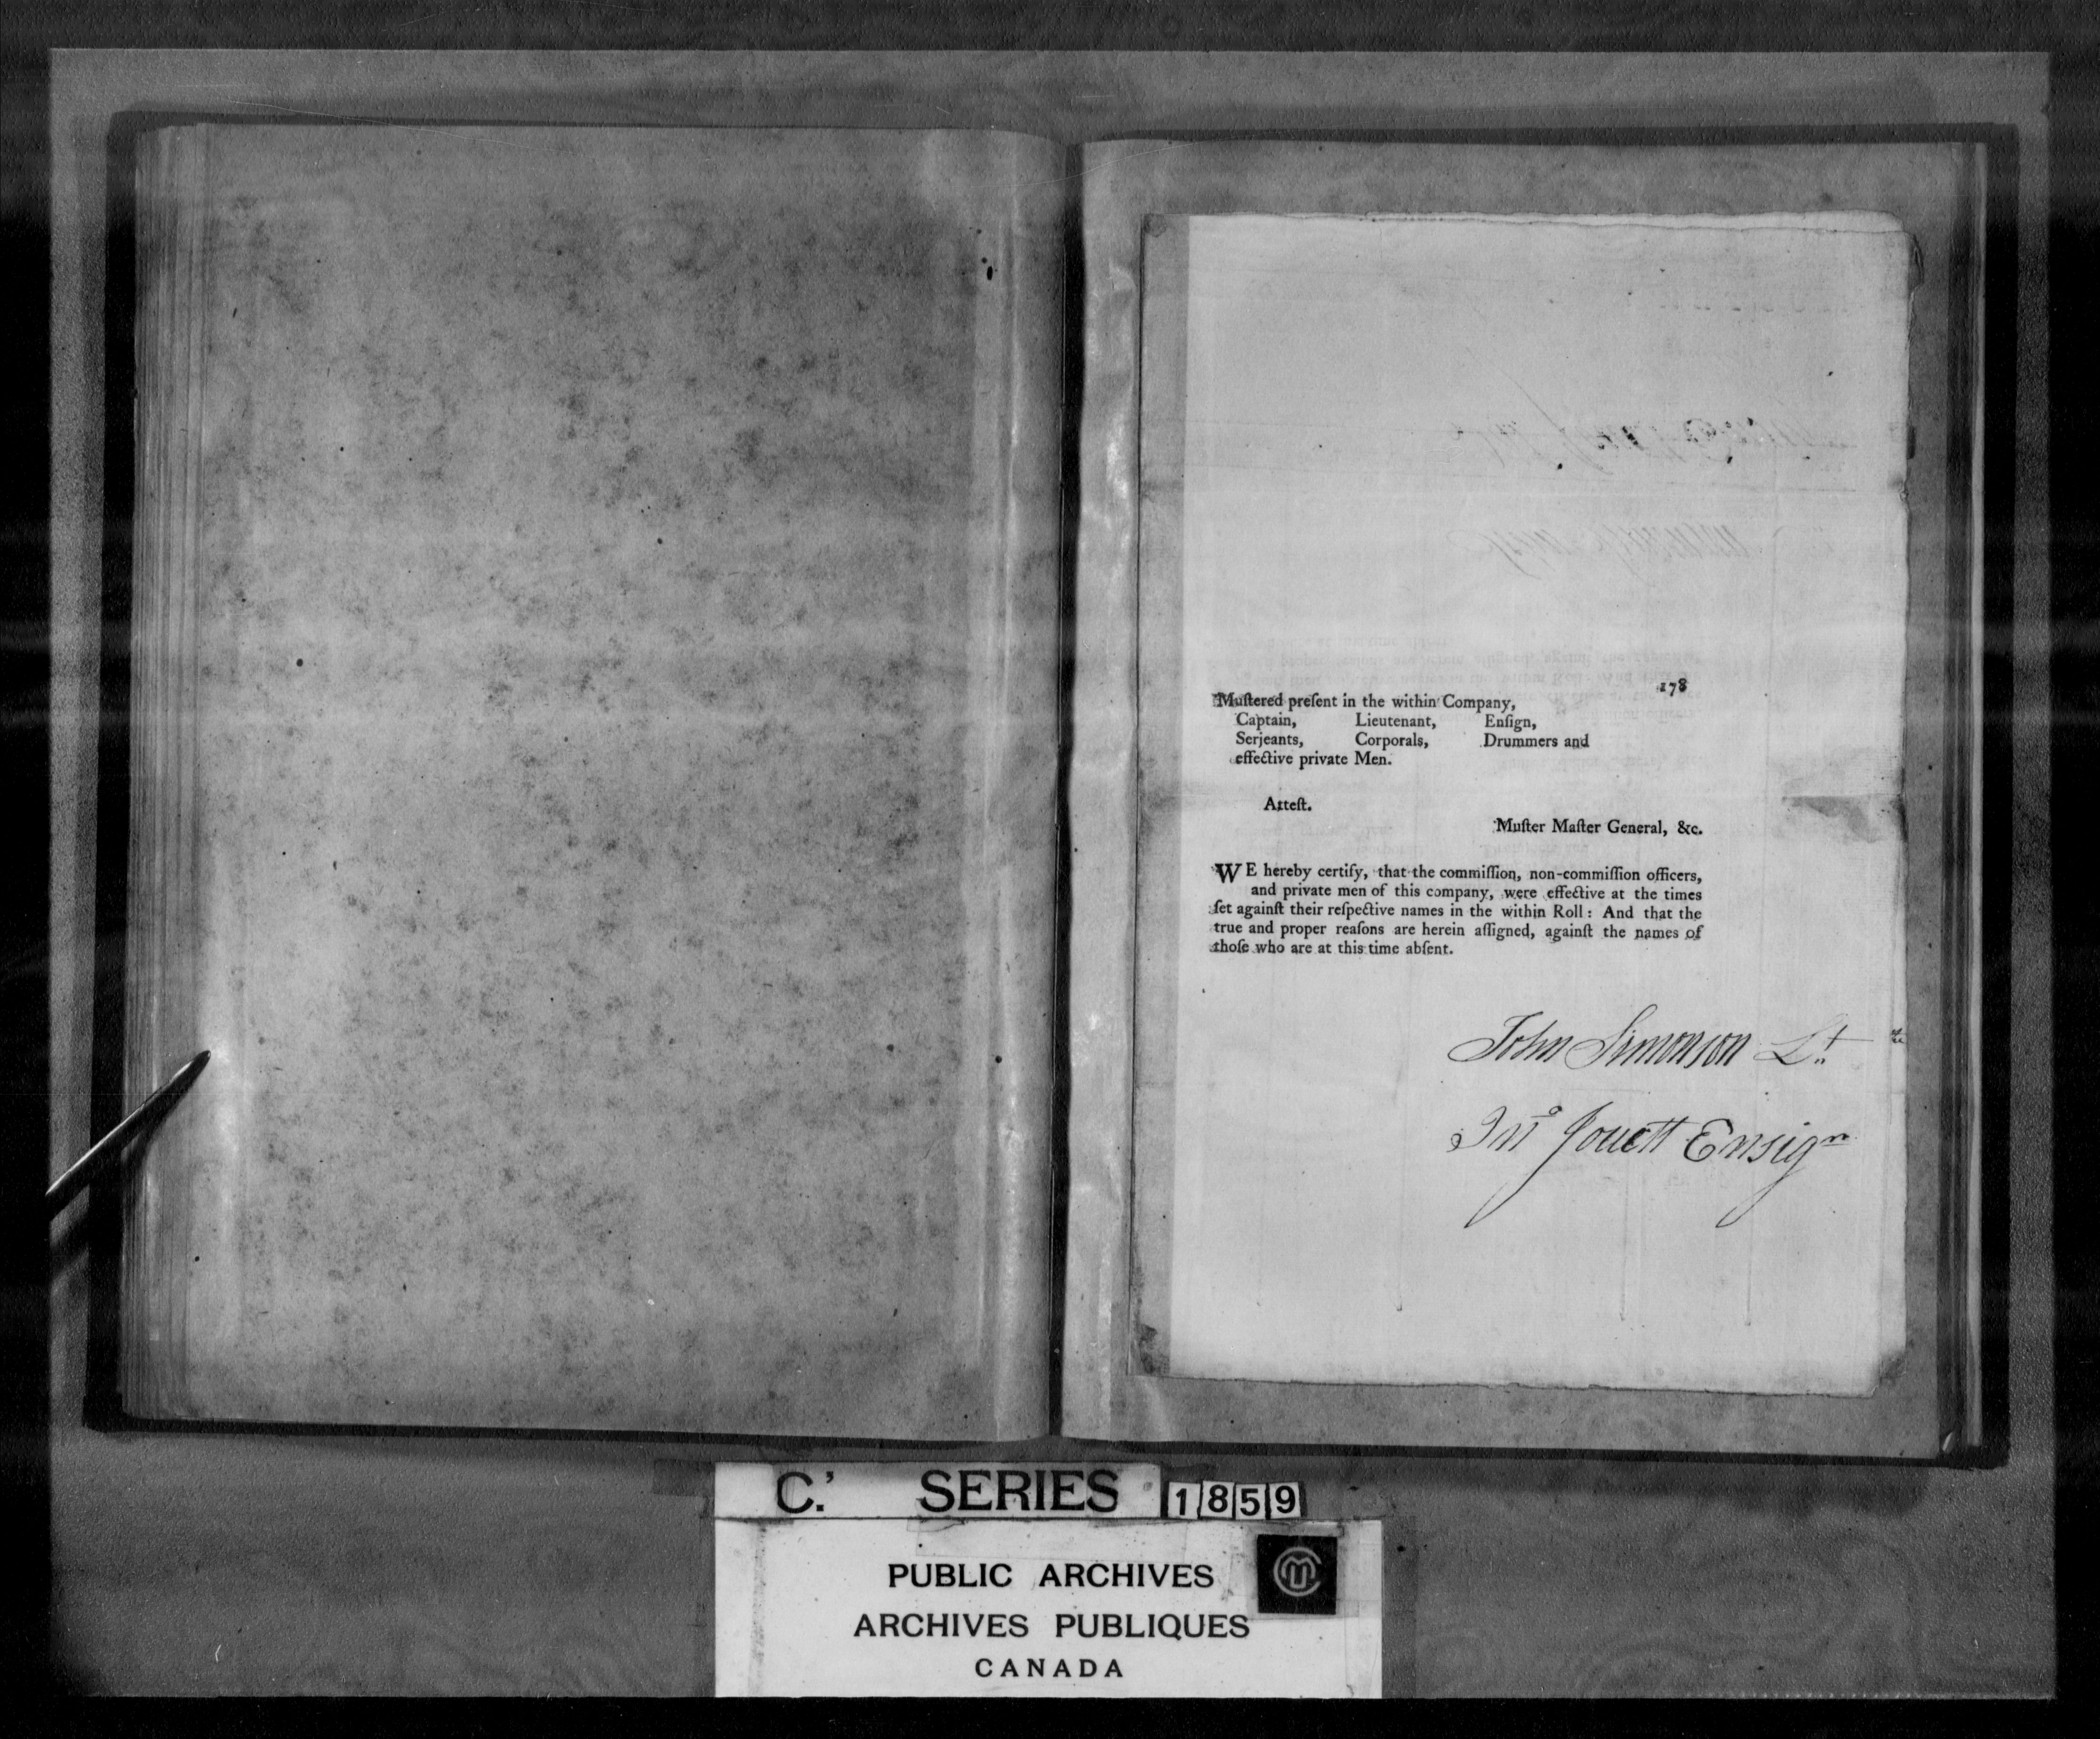 178
Muſtered preſent in the within Company,
Captain, Lieutenant, Enſign,
Serjeants, Corporals, Drummers and
effective private Men.
Atteſt.
Muſter Maſter General, &c.
WE hereby certify, that the commiſſion, non-commiſſion officers,
and private men of this company, were effective at the times
ſet againſt their reſpective names in the within Roll: And that the
true and proper reaſons are herein aſſigned, againſt the names of
thoſe who are at this time abſent.
John Simonson Lt
Jno Jouett Ensign
C.' SERIES 1859
PUBLIC ARCHIVES
ARCHIVES PUBLIQUES
CANADA